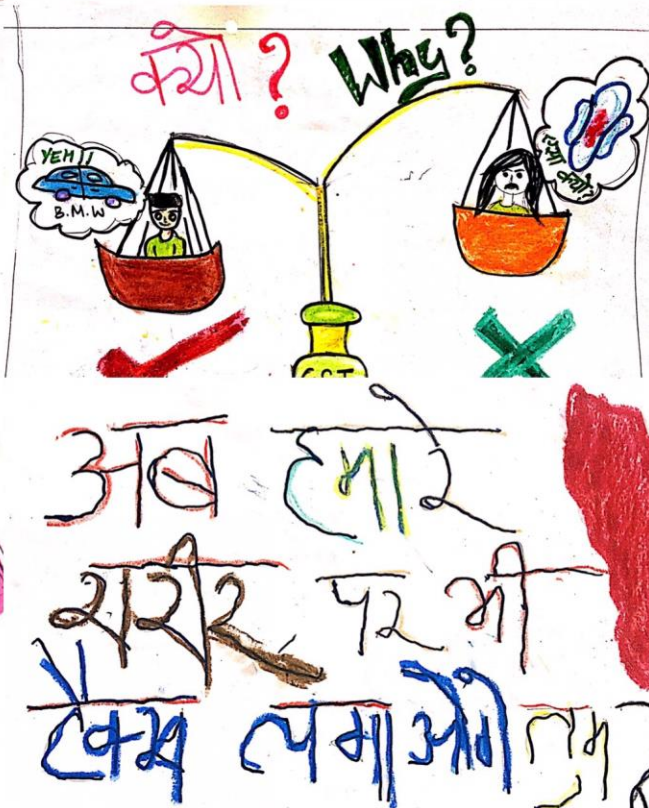 क्यों ? Why?
YEH !!
B.M.W
GST
अब हमारे
शरीर पर भी
टैक्स लगाओगे तुम